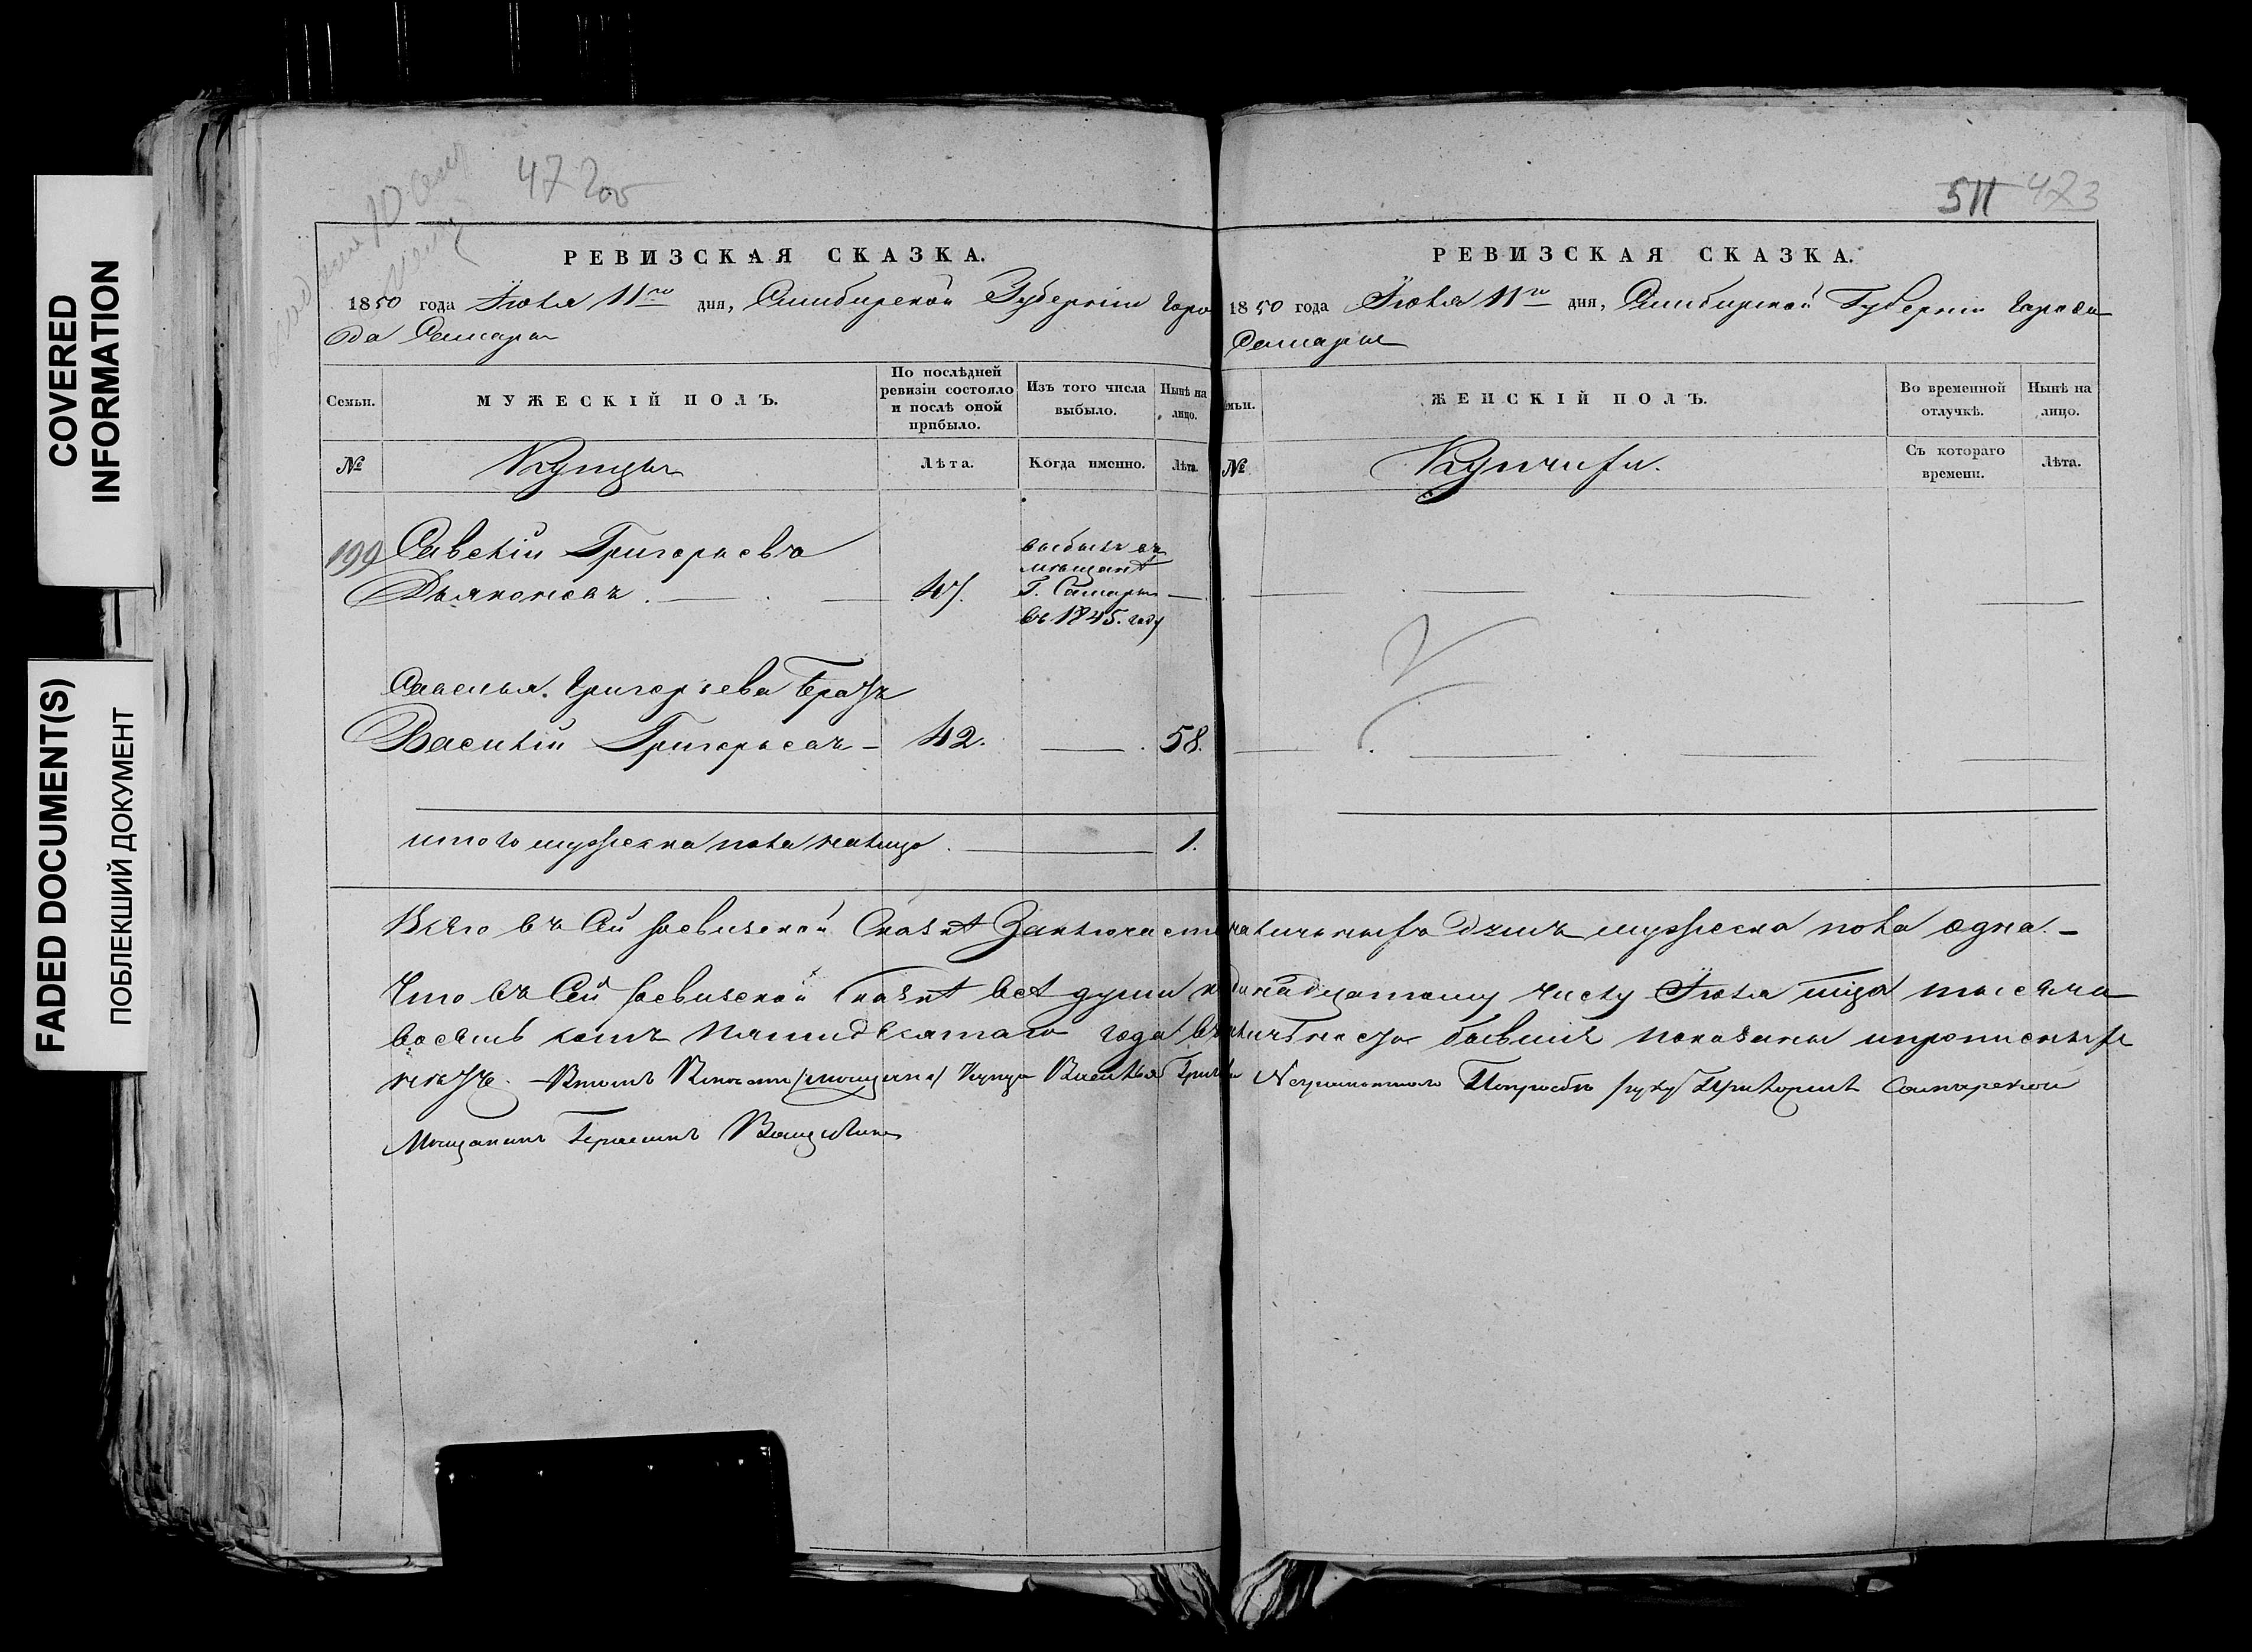 COVERED
INFORMATION
FADED DOCUMENT(S)
ПОБЛЕКШИЙ ДОКУМЕНТ
472об
РЕВИЗСКАЯ СКАЗКА.
1850 года Іюля 11го дня, Симбирской Губерніи горо
да Самары
Семьи.
МУЖЕСКІЙ ПОЛЪ.
По послѣдней
ревизіи состояло
и послѣ оной
прибыло.
Изъ того числа
выбыло.
Нынѣ на
лицо.
№
Купцы
Лѣта.
Когда именно.
Лѣта.
199 Григорьевъ
Дьяконовъ. 47. выбылъ въ
мѣщане
Г. Самары
въ 1845. году
Савелья. Григорьева братъ
Василій Григорьевъ 42. 58.
итого мужеска пола налицо. 1.
511 473
РЕВИЗСКАЯ СКАЗКА.
1850 года Іюля 11го дня, Симбирской Губерніи города
Самары
мьи.
ЖЕНСКІЙ ПОЛЪ.
Во временной
отлучкѣ.
Нынѣ на
лицо.
№
Купчихи.
Съ котораго
времени.
Лѣта.
Всего въ сей ревизской сказкѣ наличныхъ душъ мужеска пола одна.
Что въ сей ревизской сказкѣ всѣ души надцатому числу Іюля тысяча
восемь сотъ пятидесятаго года бывшіе показаны и прописныхъ
нѣтъ. купца Василья руку приложилъ Самарской
Мещанинъ Герасимъ